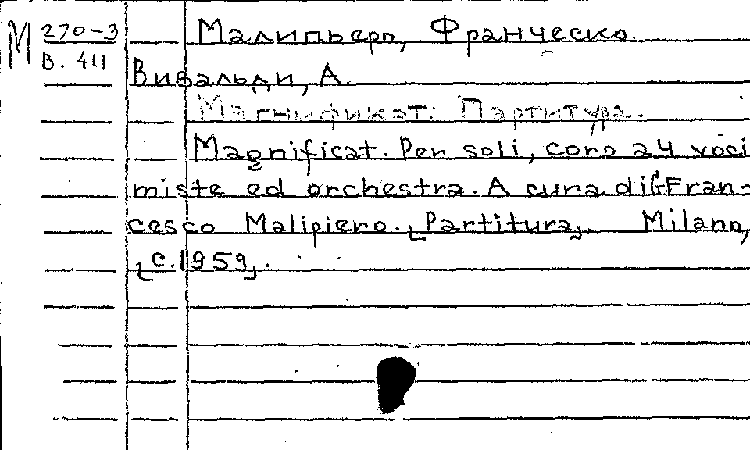 М 270-3
В. 411
Малипьеро, Франческо
Вивальди, А.
Магнификат: Партитура.
Magnificat. Per soli, coro a 4 voci
miste ed orchestra. A cura di G. Fran-
cesco Malipiero. [Partitura]. Milano,
[c.1959].